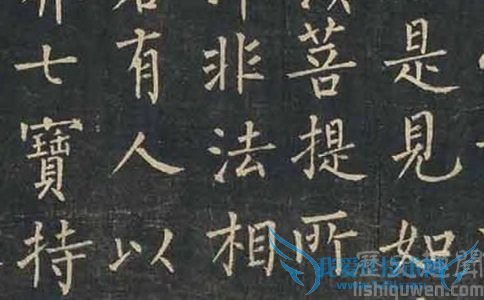 是見如
菩提所
非法相
有人以
七寶持
lishiquwen.com